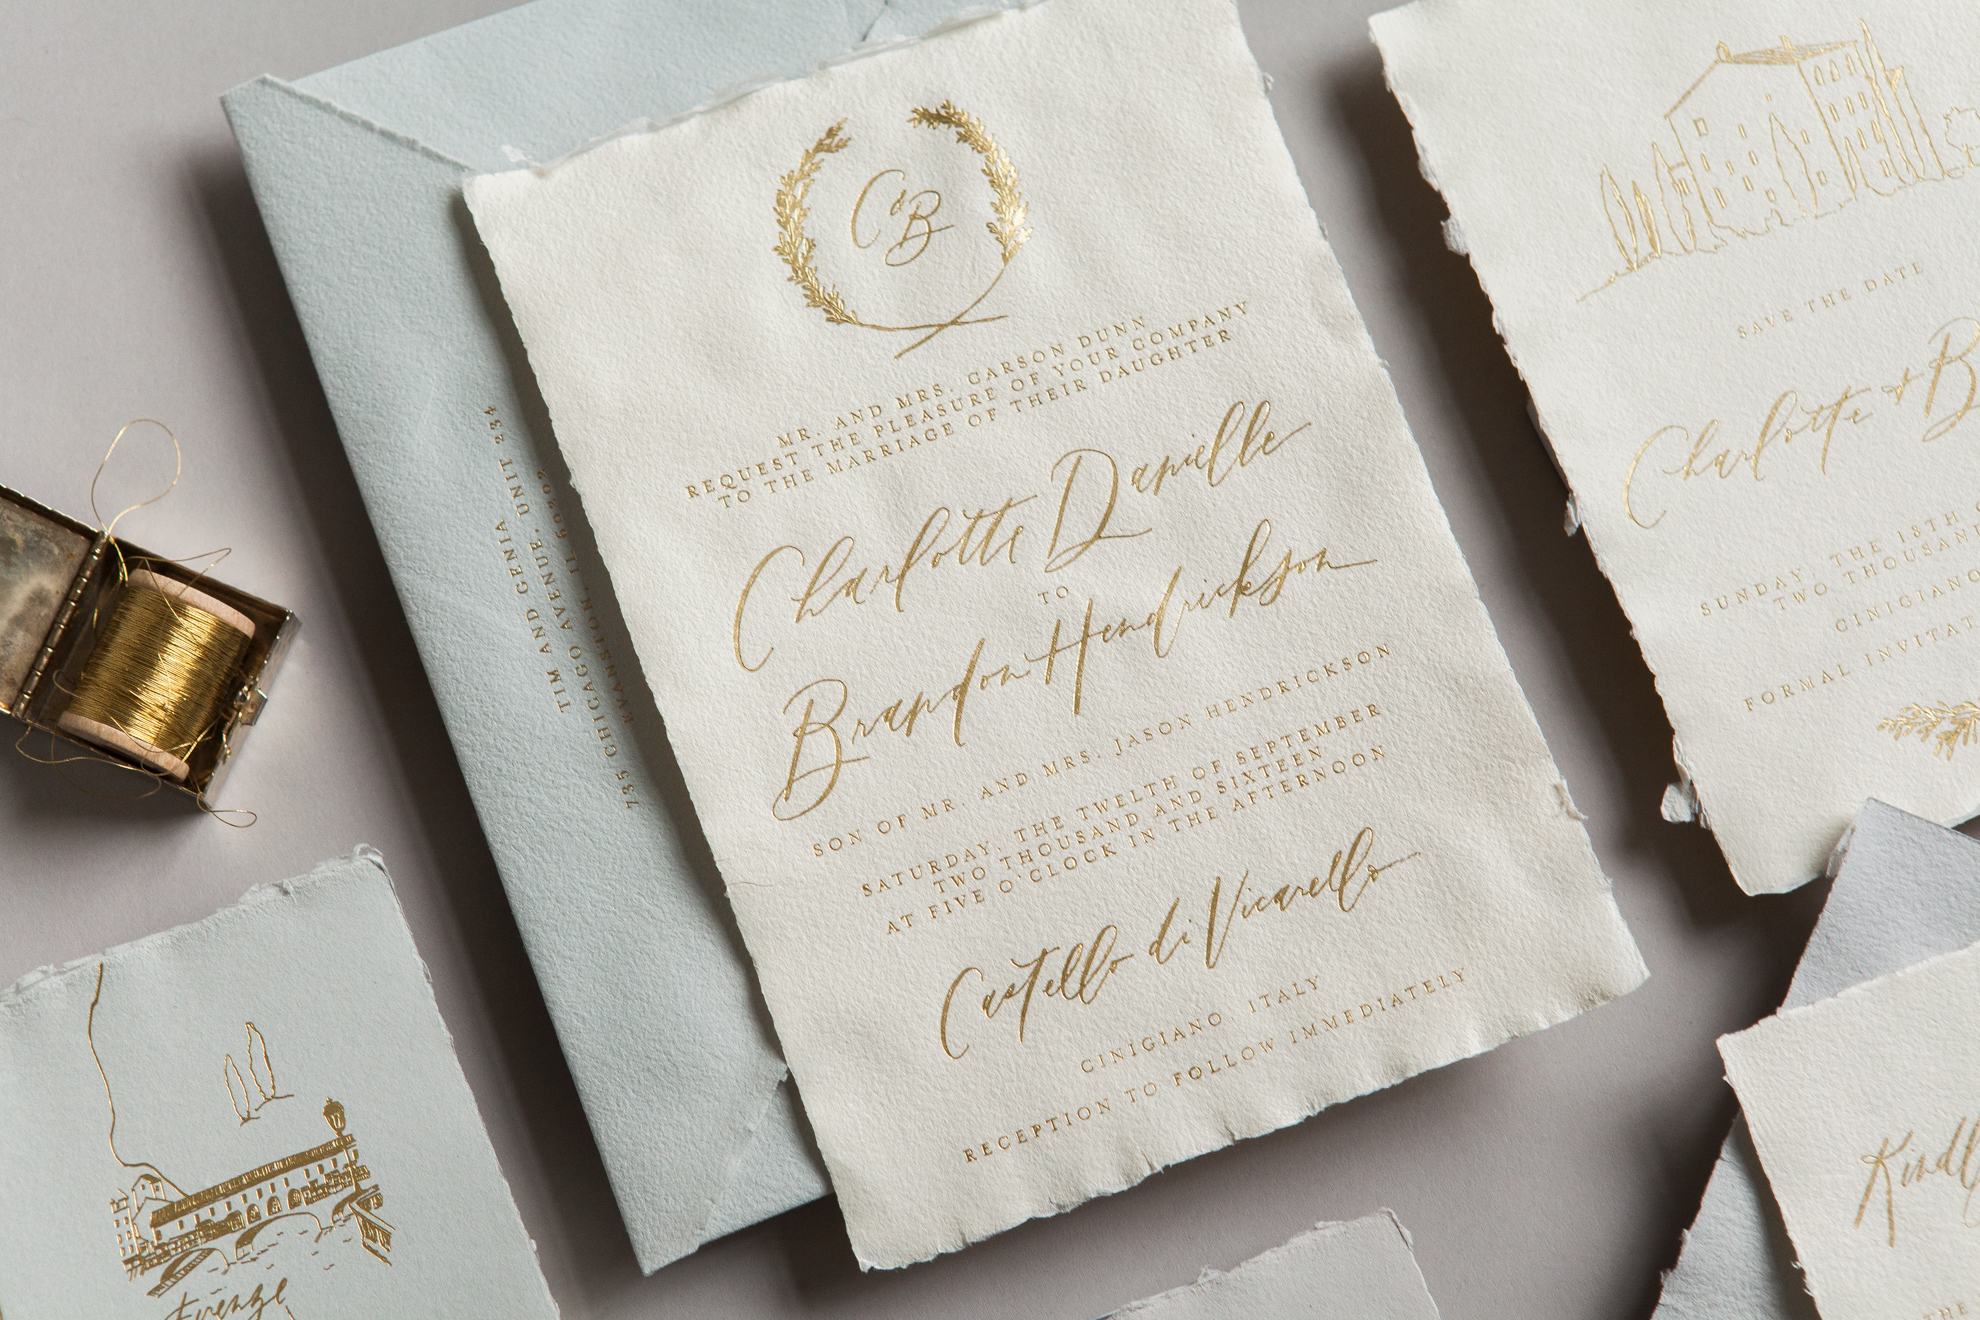 C&B
MR. AND MRS. CARSON DUNN
REQUEST THE PLEASURE OF YOUR COMPANY
TO THE MARRIAGE OF THEIR DAUGHTER
Charlotte Danielle
TO
Brandon Hendrickson
SON OF MR. AND MRS. JASON HENDRICKSON
SATURDAY, THE TWELTH OF SEPTEMBER
TWO THOUSAND AND SIXTEEN
AT FIVE O'CLOCK IN THE AFTERNOON
Castello di Vicarello
CINIGIANO, ITALY
RECEPTION TO FOLLOW IMMEDIATELY
TIM AND GENIA
735 CHICAGO AVENUE, UNIT 234
EVANSTON, IL 60202
SAVE THE DATE
Charlotte & B
SUNDAY, THE 18TH
TWO THOUSAN
CINIGIANO
FORMAL INVITAT
Firenze
Kindl
THE